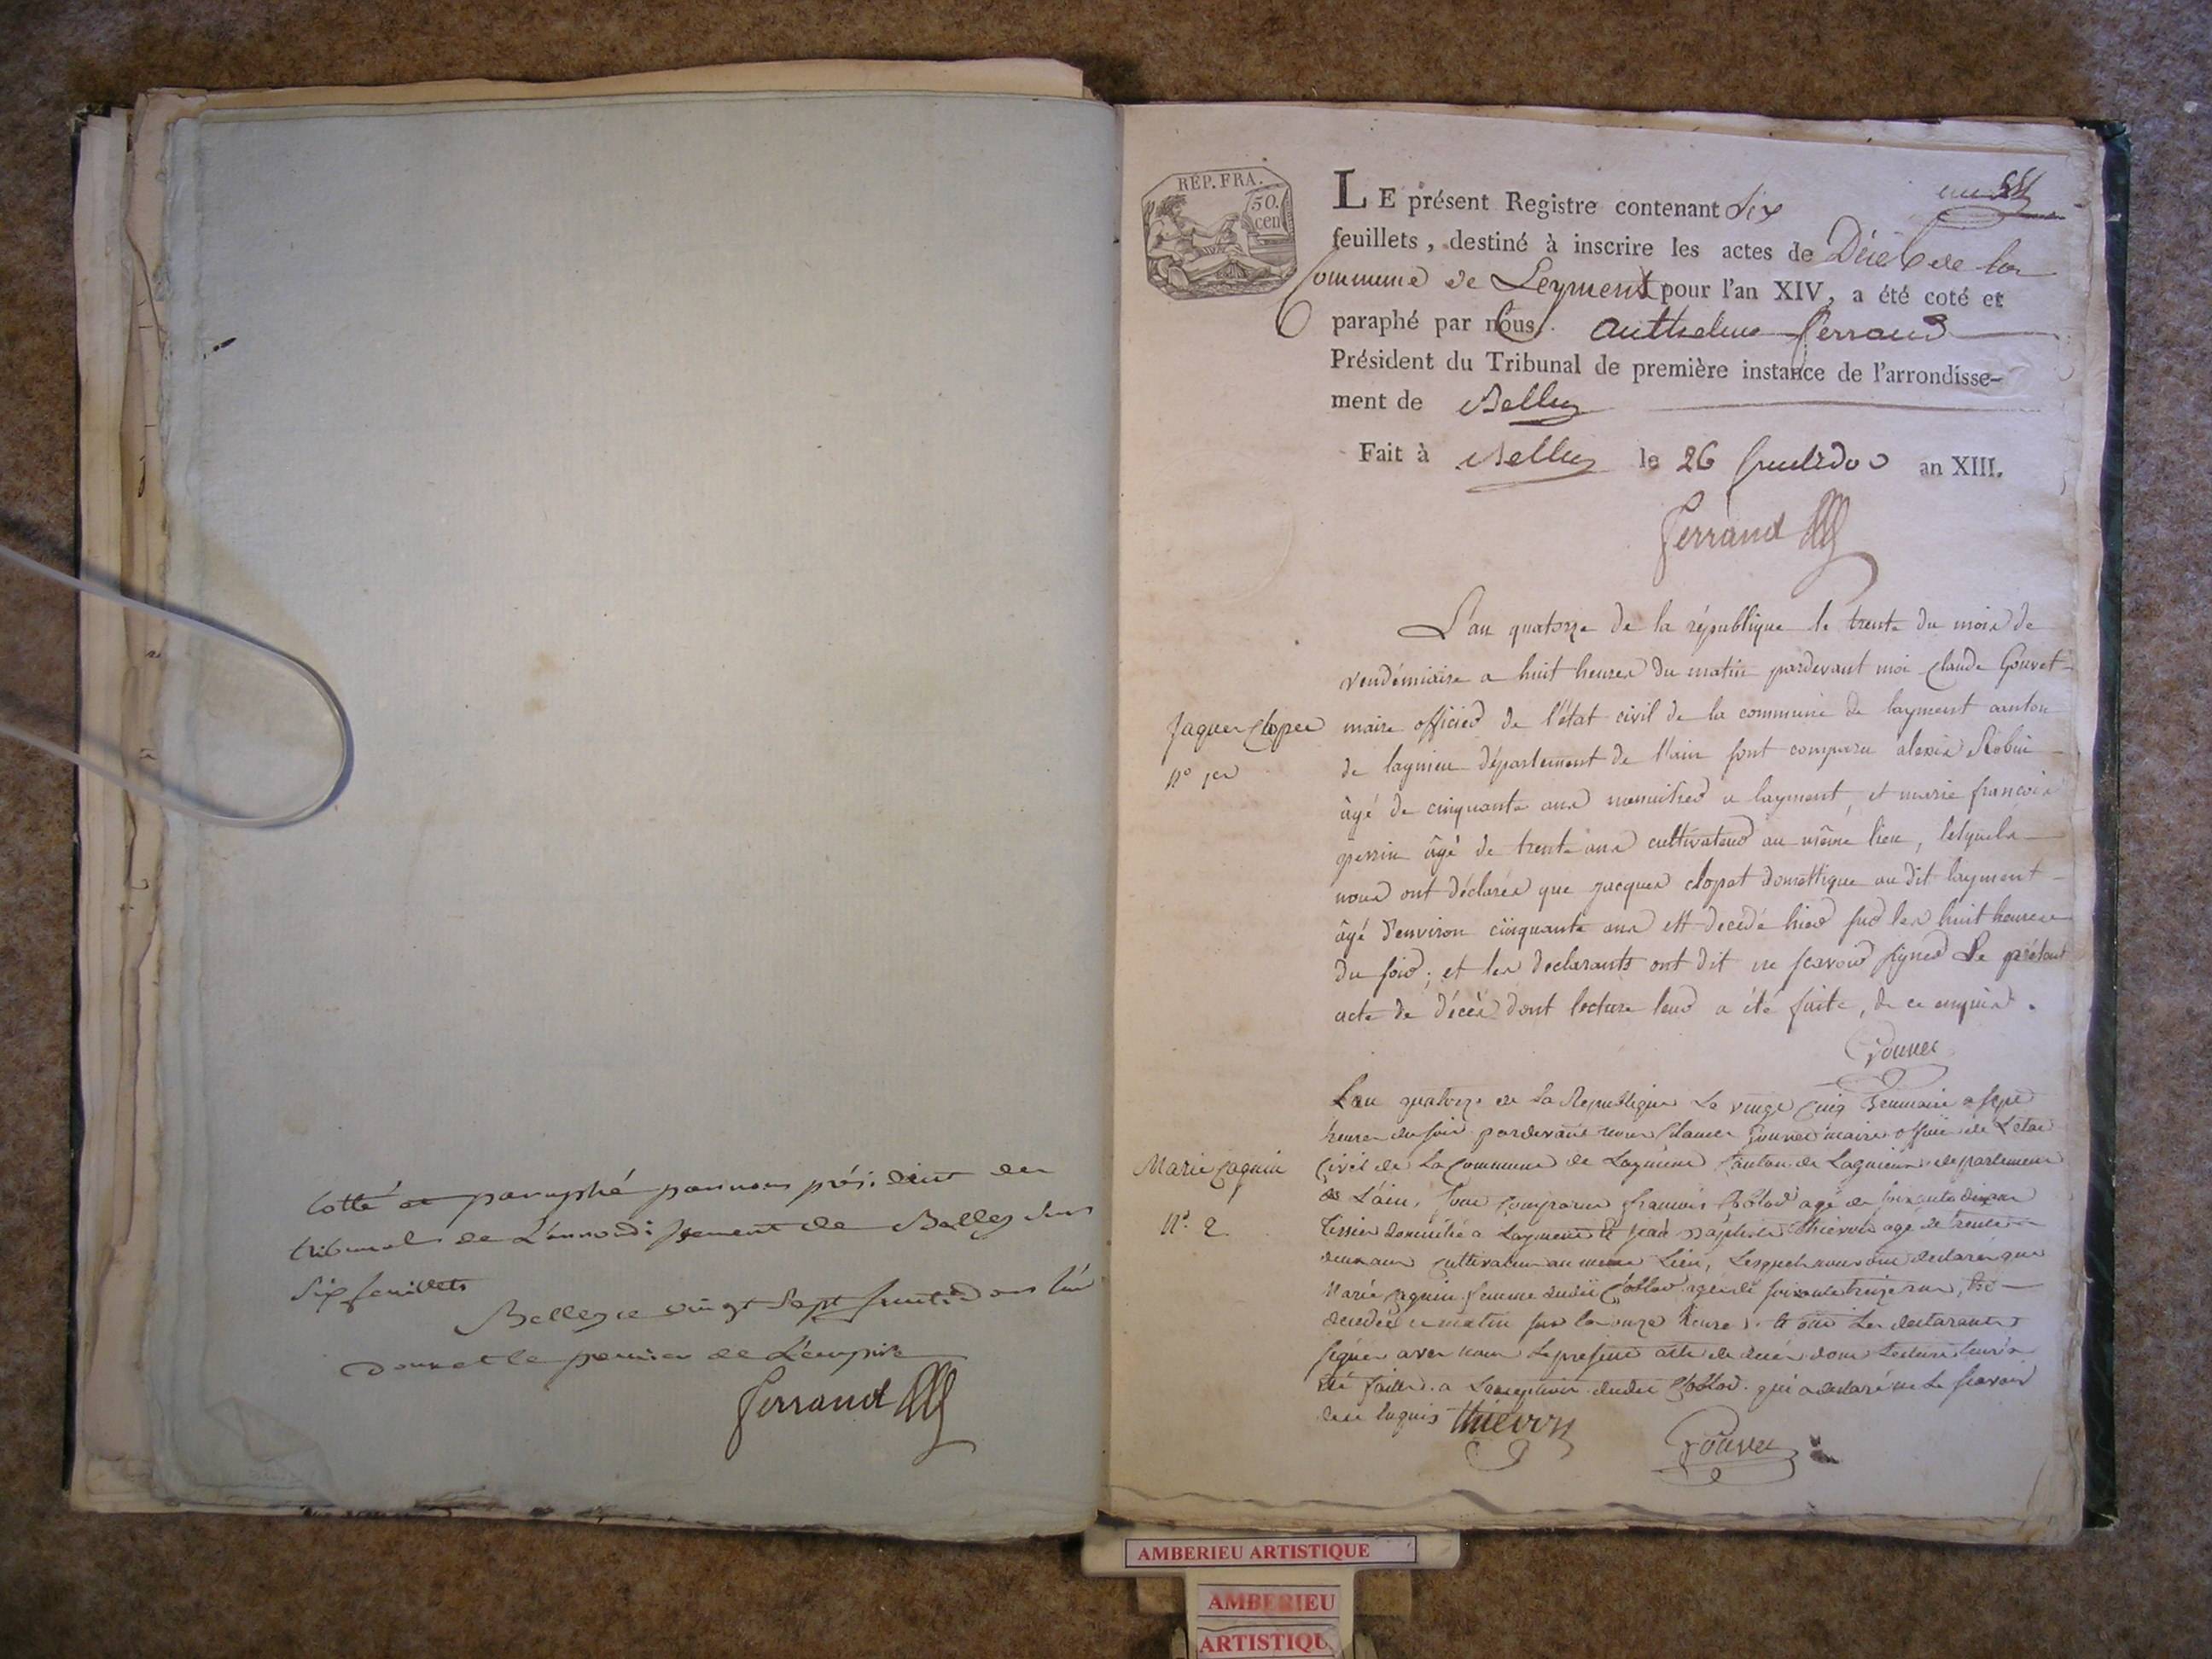 Cotté et paraphé par nous président du
tribunal de L'arrondissement de Belley sur
Six feuillets
Belley ce vingt Sept fructidor l'an
et le premier de L'empire
Ferrand
REP. FRA.
50.
cen
LE présent Registre contenant Six
feuillets, destiné à inscrire les actes de Décès de la
Commune de Leyment pour l'an XIV, a été coté et
paraphé par nous Anthelme Ferrand
Président du Tribunal de première instance de l'arrondisse-
ment de Belley
Fait à Belley le 26 fructidor an XIII.
Ferrand
L'an quatorze de la république le trente du mois de
vendémiaire a huit heures du matin pardevant moi Claude Gouvet
Jaques Clopet
n° 1er
maire officier de l'état civil de la commune de layment canton
de lagnieu département de l'ain sont comparu alexis Robin
âgé de cinquante ans menuisier a layment, et marie françois
perrin âgé de trente ans cultivateur au même lieu, lesquels
nous ont déclarés que jacques clopet domestique au dit layment
âgé d'environ cinquante ans est decédé hier sur les huit heures
du soir; et les declarants ont dit ne scavoir signer Le présent
acte de décès dont lecture leur a été faite, de ce enquis.
Gouvet
L'an quatorze de La Republique Le vingt cinq Brumaire a sept
heures du soir pardevant nous Claude Gouvet maire officier de L'etat
Marie Caquin
N° 2
Civil de La Commune de Layment Canton de Lagnieu departement
de L'ain, sont comparus françois agé de soixante dix ans
Tissier domicilié a Layment et jean Baptiste Thievon agé de trente
deux ans cultivateur au meme Lieu, Lesquels nous ont declarés que
Marie Caquin femme dudit agée de soixante treize ans, est
decedée ce matin sur les onze heures. et ont Les declarants
signés avec nous Le present acte de décès dont Lecture leur a
été faite. a L'exception dudit qui a declaré ne le scavoir
de ce enquis Thievon
Gouvet
AMBERIEU ARTISTIQUE
AMBERIEU
ARTISTIQU